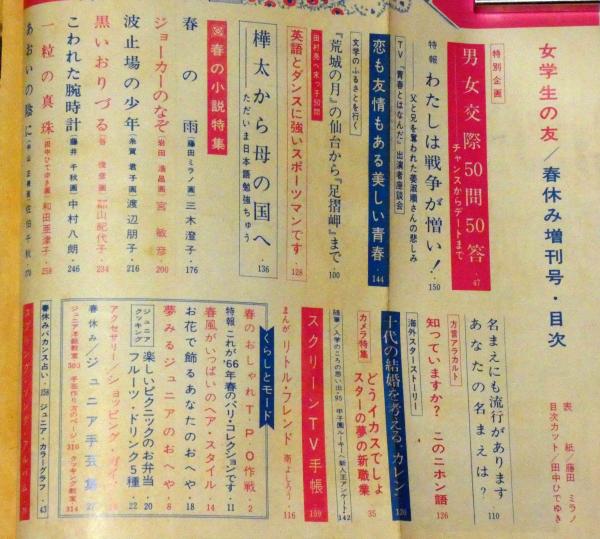 女学生の友/春休み増刊号・目次
表紙/藤田ミラノ
目次カット/田中ひでゆき
特別企画
男女交際50問50答
チャンスからデートまで
47
名まえにも流行があります
あなたの名まえは?
110
特報
わたしは戦争が憎い!
父と兄を奪われた姜淑順さんの悲しみ
150
方言アラカルト
知っていますか? このニホン語
126
TV「青春とはなんだ」出演者座談会
恋も友情もある美しい青春
144
海外スターストーリー
十代の結婚を考える・カレン
120
文学のふるさとを行く
『荒城の月』の仙台から『足摺岬』まで
100
カメラ特集
どうイカスでしょ
スターの夢の新職業
35
田村亮へ末っ子50問
英語とダンスに強いスポーツマンです
128
随筆/入学のころの思い出・95
甲子園ルーキーへ新人王アンケート・142
スクリーンTV手帳
159
樺太から母の国へ
ただいま日本語勉強ちゅう
136
まんが
リトル・フレンド
南よしろう
116
春の小説特集
春の雨
(藤田ミラノ画)
三木澄子
176
ジョーカーのなぞ
(岩田浩昌画)
宮敏彦
200
波止場の少年
(糸賀君子画)
渡辺朋子
216
黒いおりづる
(谷俊彦画)
郡山紀代子
234
こわれた腕時計
(藤井千秋画)
中村八朗
246
一粒の真珠
(田中ひでゆき画)
和田亜津子
258
あおいの陰に
佐伯千秋
270
くらしとモード
春のおしゃれT・P・O作戦・2
特報 これが'66年春のパリ・コレクションです・11
春風がいっぱいのヘア・スタイル
14
お花で飾るあなたのおへや
18
夢みるジュニアのおへや・8
ジュニアクッキング
楽しいピクニックのお弁当
20
フルーツ・ドリンク5種
22
アクセサリー/ショッピング・ガイド
春休み/ジュニア手芸集
ジュニア洋裁教室 303
手芸作り方のページ・310
クッキング教室 314
春休みバカンス占い・
ジュニア・カラーグラフ・43
スプリング・ソング・アルバム